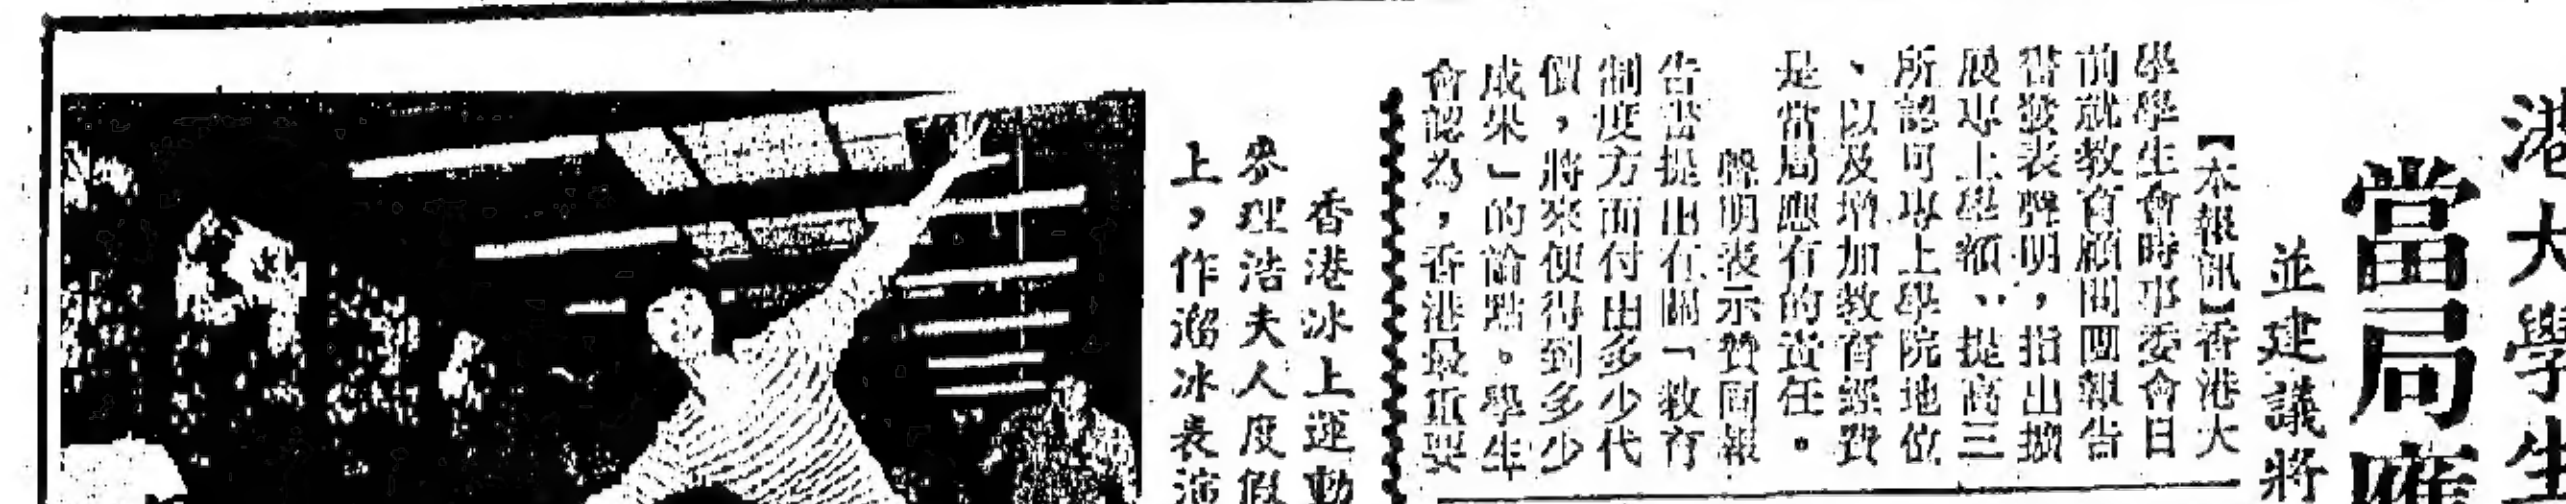 港大學生
當局應
並建議將
【本報訊】香港大
學學生會時事委會日
前就教育顧問團報告
書發表聲明，指出擴
展專上學額、提高三
所認可專上學院地位
、以及增加教育經費
是當局應有的責任。
聲明表示贊同報
告書提出有關「教育
制度方面付出多少代
價，將來便得到多少
成果」的論點。學生
會認為，香港最重要
香港冰上運動
參理浩夫人度假
上，作溜冰表演